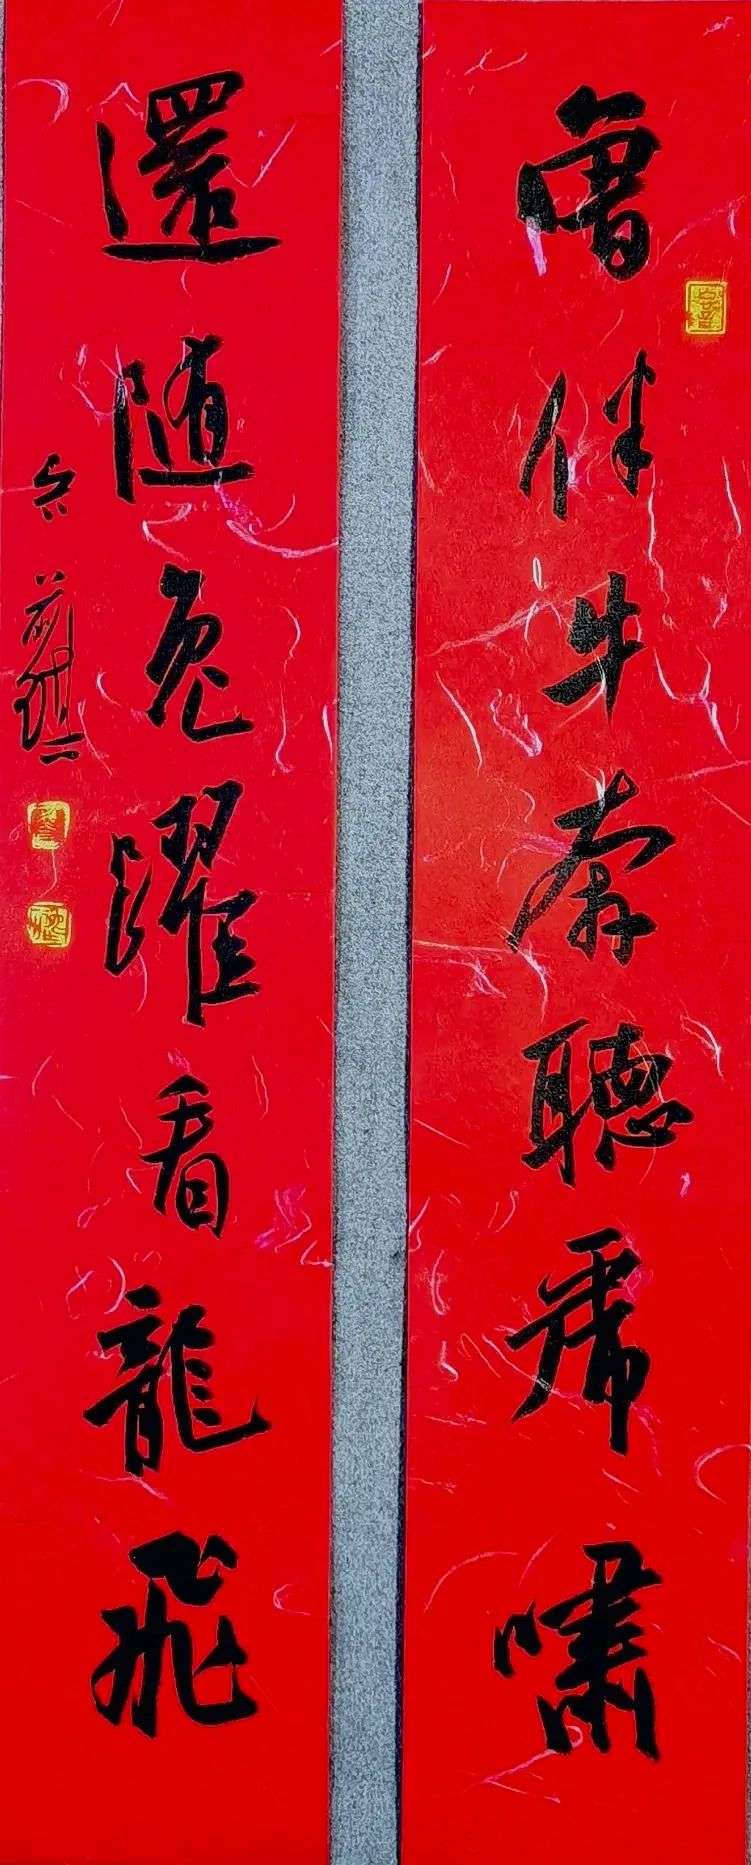 曾伴牛奔聽虎嘯
還随兔躍看龍飛